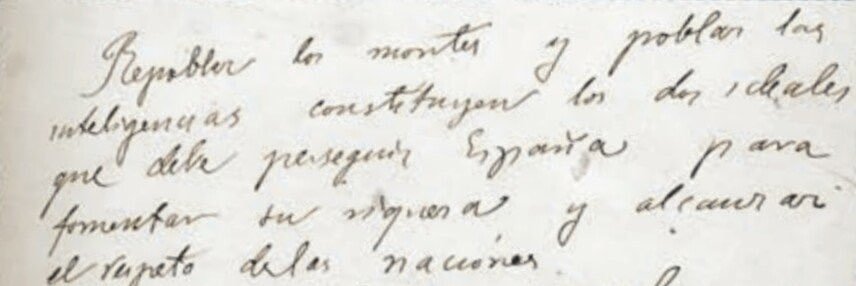 Repoblar los montes y poblar las
inteligencias constituyen los dos ideales
que debe perseguir España para
fomentar su riqueza y alcanzar
el respeto de las naciones